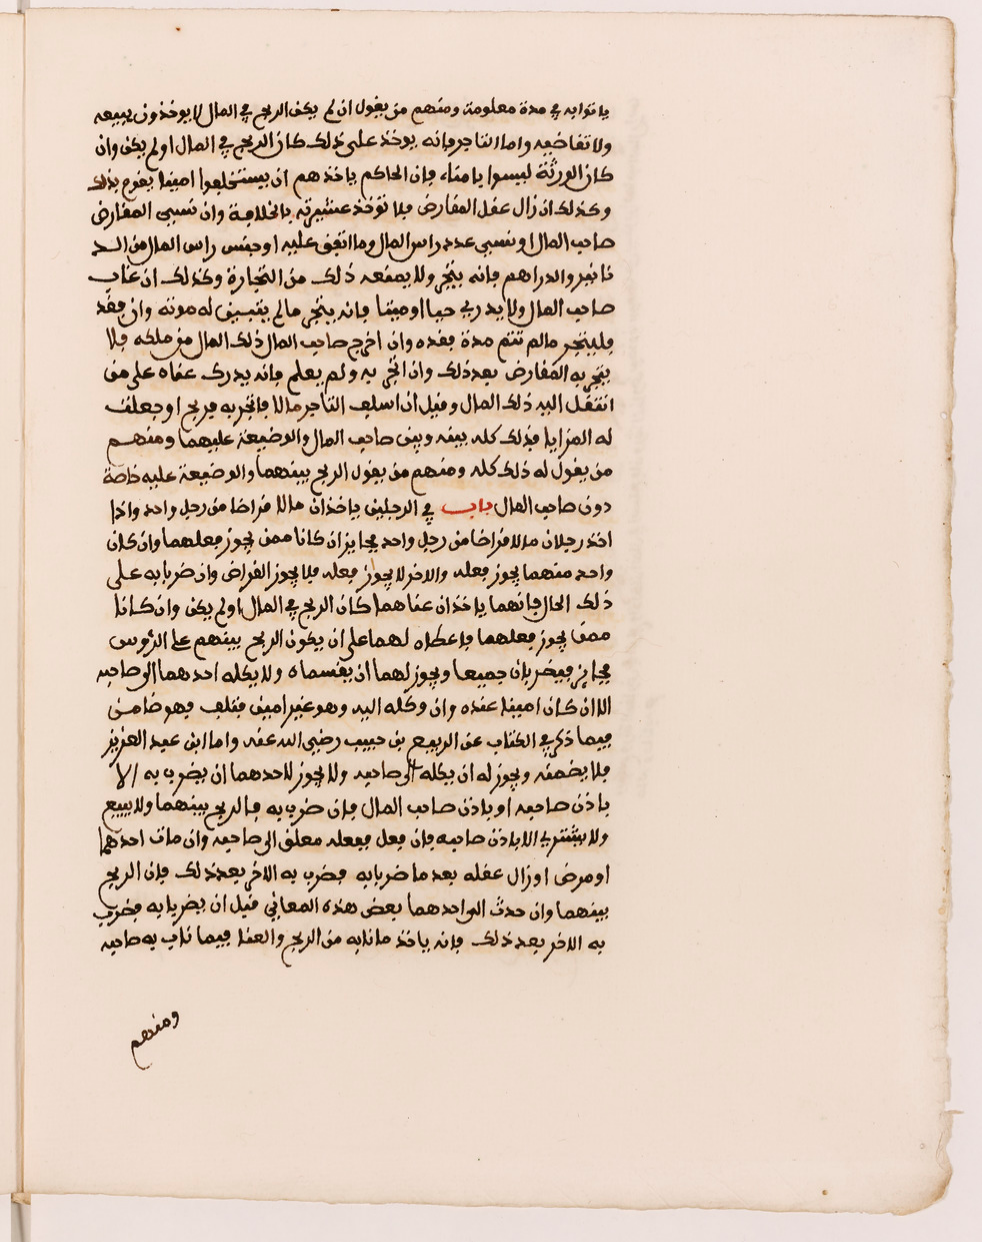 ياتوا به في مدة معلومة ومنهم من يقول ان لم يكن الربح في المال لا يوخذون ببيعه
ولا تقاضيه واما التاجر فانه يوخذ على ذلك كان الربح في المال او لم يكن وان
كان الورثة ليسوا بامناء فان الحاكم ياخذهم ان يستخلفوا امينا يقوم بذلك
وكذلك ان زال عقل المقارض فلا توخذ عشيرته بالخلافة وان نسي المقارض
صاحب المال او نسي عدد راس المال وما اتفق عليه او جنس راس المال من الد
نانير والدراهم فانه يتجر ولا يمنعه ذلك من التجارة وكذلك ان غاب
صاحب المال ولا يدري حيا او ميتا فانه يتجر ما لم يتبين له موته وان فقد
فليتجر مالم تتم مدة فقده وان اخرج صاحب المال ذلك المال من ملكه فلا
يتجر به المقارض بعد ذلك وان اتجر به ولم يعلم فانه يدرك عناه على من
انتقل اليه ذلك المال وقيل ان اسلف التاجر مالا فاتجر به فربح او جعلت
له المزايا فذلك كله بينه وبين صاحب المال والوضيعة عليهما ومنهم
من يقول له ذلك كله ومنهم من يقول الربح بينهما والوضيعة عليه خاصة
دون صاحب المال باب في الرجلين ياخذان مالا قراضا من رجل واحد واذا
اخذ رجلان مالا قراضا من رجل واحد فجايز ان كانا ممن يجوز فعلهما وان كان
واحد منهما يجوز فعله والاخر لا يجوز فعله فلا يجوز القراض وان ضربا به على
ذلك الحال فانهما ياخذان عناهما كان الربح في المال او لم يكن وان كانا
ممن يجوز فعلهما فاعطاه لهما على ان يكون الربح بينهم على الرؤس
فجايز فيضربان جميعا ويجوز لهما ان يقسماه ولا يكله احدهما الى صاحبه
الا ان كان امينا عنده وان وكله اليه وهو غير امين فتلف فهو ضامن
فيما ذكر في الكتاب عن الربيع بن حبيب رضي الله عنه واما ابن عبد العزيز
فلا يضمنه ويجوز له ان يكله الى صاحبه ولا يجوز لاحدهما ان يضرب به الا
باذن صاحبه او باذن صاحب المال فان ضرب به فالربح بينهما ولا يبيع
ولا يشتري الا باذن صاحبه فان فعل ففعله معلق الى صاحبه وان مات احدهما
او مرض او زال عقله بعد ما ضربا به فضرب به الاخر بعد ذلك فان الربح
بينهما وان حدث الى احدهما بعض هذه المعاني قبل ان يضربا به فضرب
به الاخر بعد ذلك فانه ياخذ مانابه من الربح والعنا فيما ناب به صاحبه
ومنهم